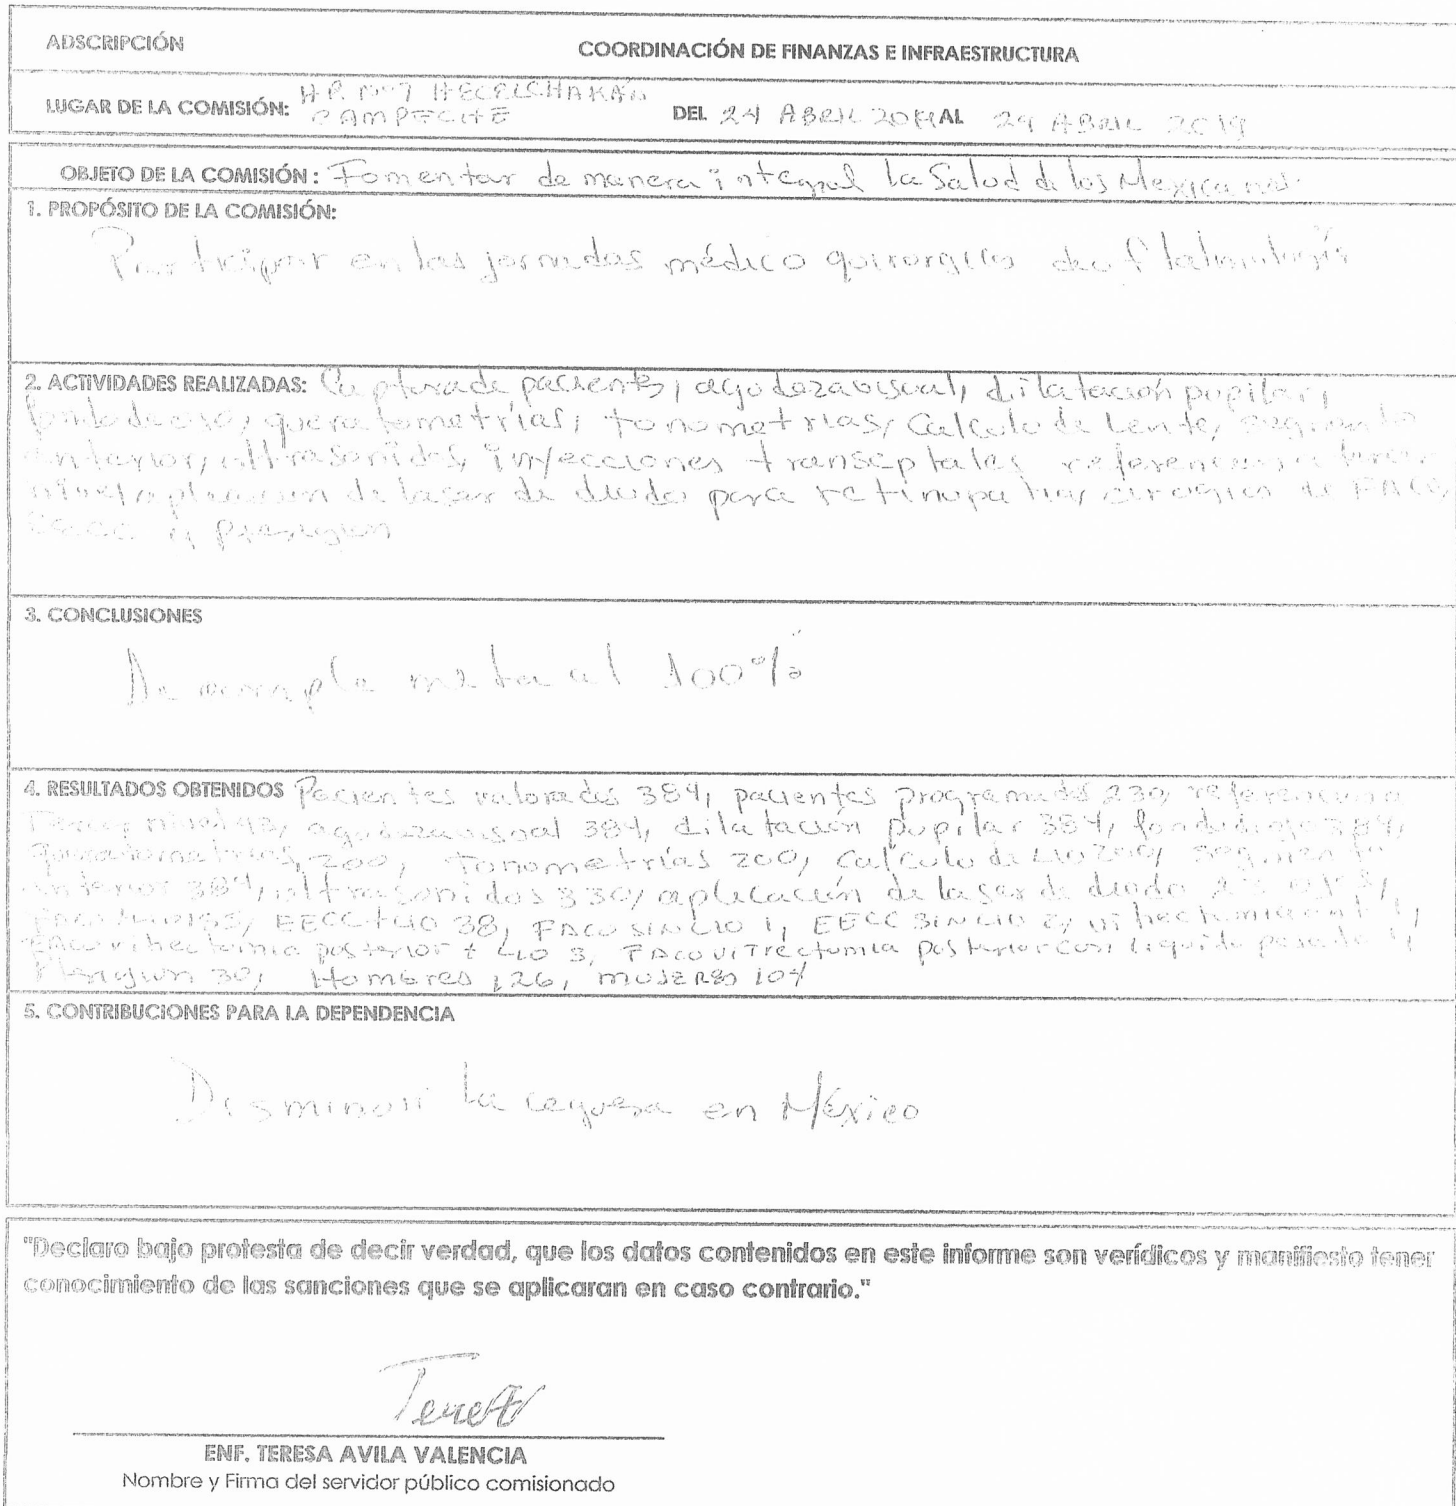 ADSCRIPCIÓN COORDINACIÓN DE FINANZAS E INFRAESTRUCTURA
H.R. HECELCHAKÁN
LUGAR DE LA COMISIÓN: CAMPECHE DEL 24 ABRIL 2019 AL 29 ABRIL 2019
OBJETO DE LA COMISIÓN: Fomentar de manera integral la Salud de los Mexicanos.
1. PROPÓSITO DE LA COMISIÓN:
Participar en las jornadas médico quirurgicas de oftalmología
2. ACTIVIDADES REALIZADAS: Captura de pacientes, agudeza visual, dilatación pupilar,
fondo de ojo, queratometrías, tonometrias, Calculo de Lente, segmento
anterior, ultrasonidos, inyecciones transeptales referencias a tercer
nivel aplicacion de laser de diodo para retinopatias, cirugias de FACO,
EECC y Pterigion
3. CONCLUSIONES
Se cumple meta al 100%
4. RESULTADOS OBTENIDOS Pacientes valorados 384, pacientes programados 230, referencias a
Tercer nivel 43, agudeza visual 384, dilatación pupilar 384, fondo de ojo 384,
queratometrias, 200, Tonometrías 200, Calculo de LIO 200, segmento
anterior 384, ultrasonidos 330, aplicación de laser de diodo
EECC + LIO 38, FACO SIN LIO 1, EECC SIN LIO 2,
FACO vitrectomia posterior + LIO 3, FACO vitrectomia posterior con liquido pesado 1,
Pterigium 30, Hombres 126, mujeres 104
5. CONTRIBUCIONES PARA LA DEPENDENCIA
Disminuir la ceguera en México
"Declaro bajo protesta de decir verdad, que los datos contenidos en este informe son verídicos y manifiesto tener
conocimiento de las sanciones que se aplicaran en caso contrario."
ENF. TERESA AVILA VALENCIA
Nombre y Firma del servidor público comisionado